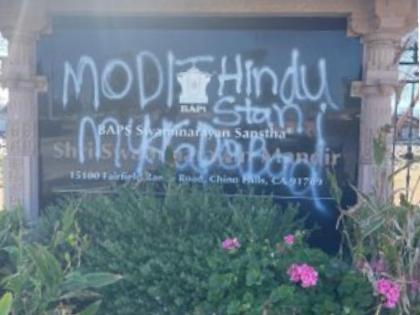 MODI Hindu
BAPS
Stani
BAPS Swaminarayan Sanstha®
Murdabad
Shri Swaminarayan Mandir
15100 Fairfield Ranch Road, Chino Hills, CA 91709